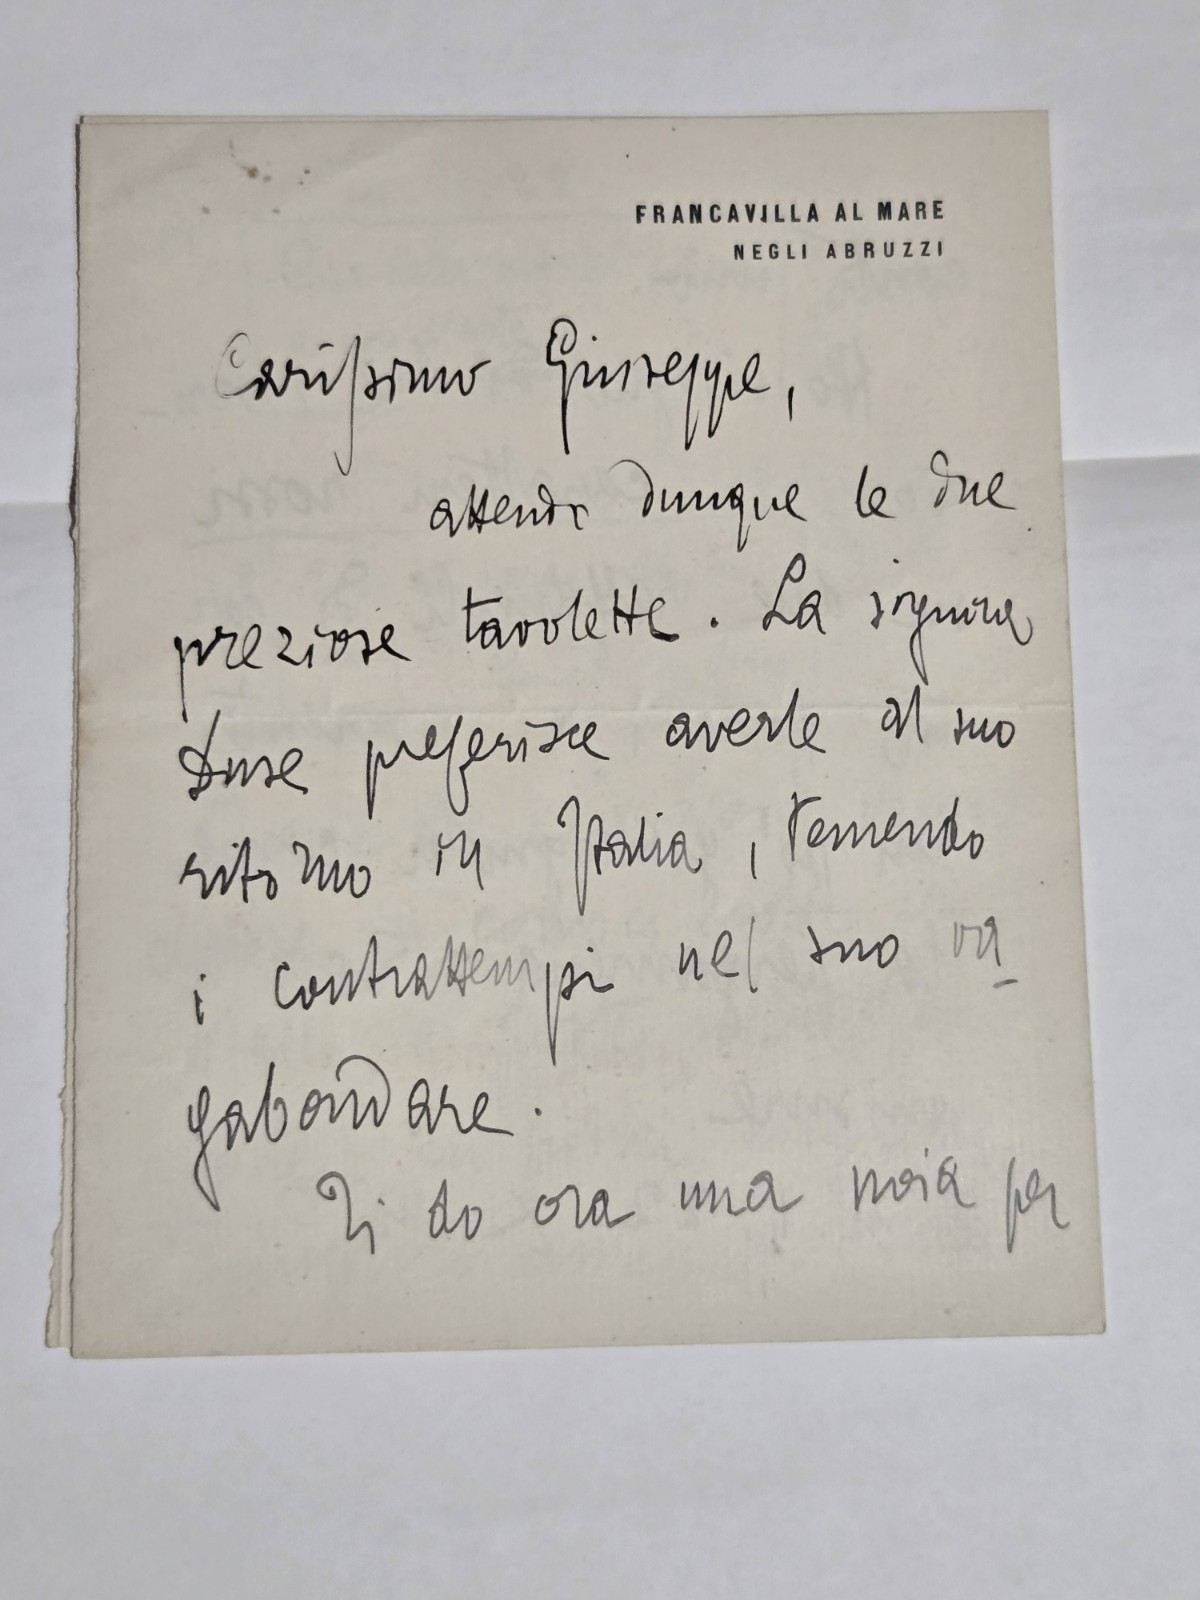 FRANCAVILLA AL MARE
NEGLI ABRUZZI
Carissimo Giuseppe,
attendo dunque le due
preziose tavolette. La signora
Duse preferisce averle al suo
ritorno in Italia, temendo
i contrattempi nel suo va-
gabondare.
Ti do ora una noia per